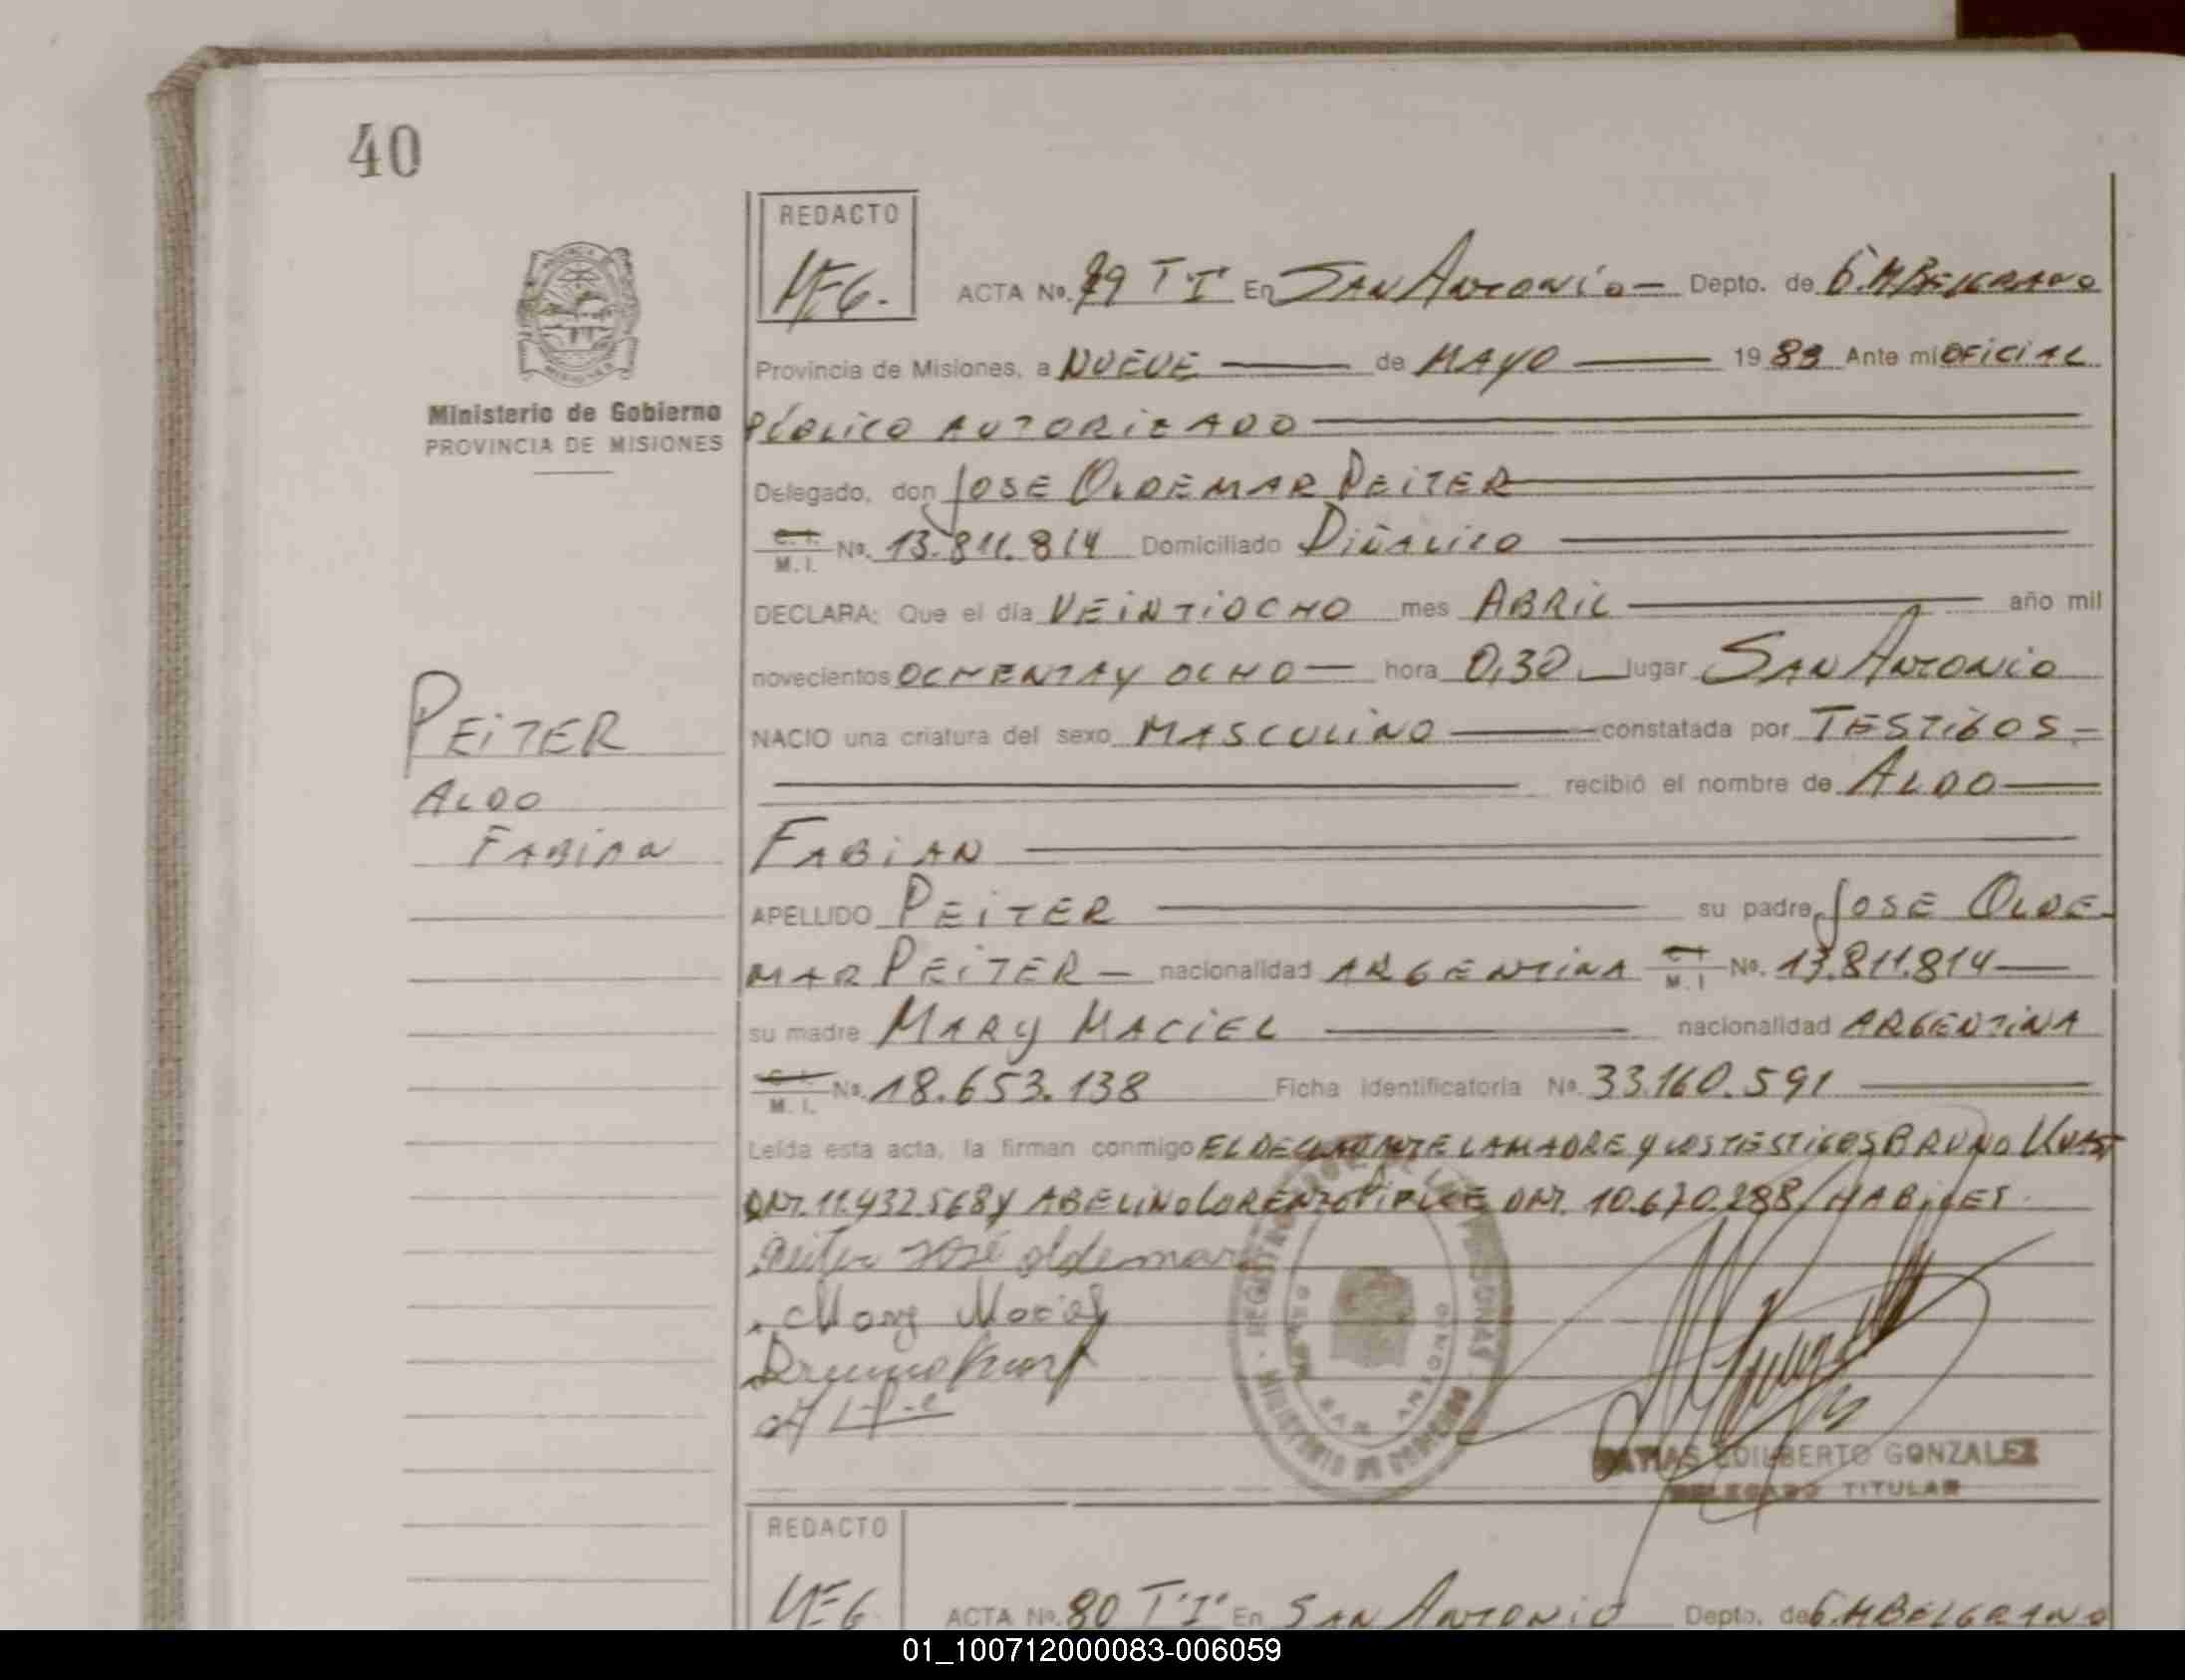 40
REDACTO
ACTA No. 79 T I En SAN ANTONIO — Depto. de G.M BELGRANO
Provincia de Misiones, a NUEVE — de MAYO — 1988 Ante mi OFICIAL
PUBLICO AUTORIZADO
Ministerio de Gobierno
PROVINCIA DE MISIONES
Delegado, don JOSE OLDEMAR PEITER
C. I. M. I. No. 13.811.814 Domiciliado PIÑALITO
DECLARA: Que el día VEINTIOCHO mes ABRIL — año mil
novecientos OCHENTA Y OCHO — hora 0,30 — lugar SAN ANTONIO
NACIO una criatura del sexo MASCULINO — constatada por TESTIGOS -
recibió el nombre de ALDO —
FABIAN
PEITER
ALDO
FABIAN
APELLIDO PEITER — su padre JOSE OLDE-
MAR PEITER — nacionalidad ARGENTINA C I M. I No. 13.811.814 —
su madre MARY MACIEL — nacionalidad ARGENTINA
C. I. M. I. No. 18.653.138 Ficha identificatoria No. 33.160.591
Leída esta acta, la firman conmigo EL DECLARANTE LA MADRE Y LOS TESTIGOS BRUNO
DNI. 11.432.568 Y ABELINO LORENZO DNI. 10.670.288/HABILES
Peiter José oldemar
Mary Maciel
Bruno
REGISTRO DE LAS PERSONAS
SAN ANTONIO
MINISTERIO DE GOBIERNO
MATIAS EDILBERTO GONZALEZ
DELEGADO TITULAR
REDACTO
ACTA No. 80 T I En SAN ANTONIO Depto. de G.M BELGRANO
01_100712000083-006059